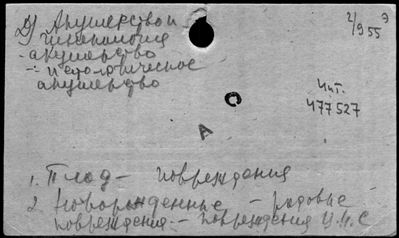 2) Акушерство и
гинекология
- акушерство
- патологическое
акушерство
2/955 Э
Инт.
477527
А
1. Плод - повреждения
2. Новорожденные - родовые
повреждения. - повреждения Ц.Н.С